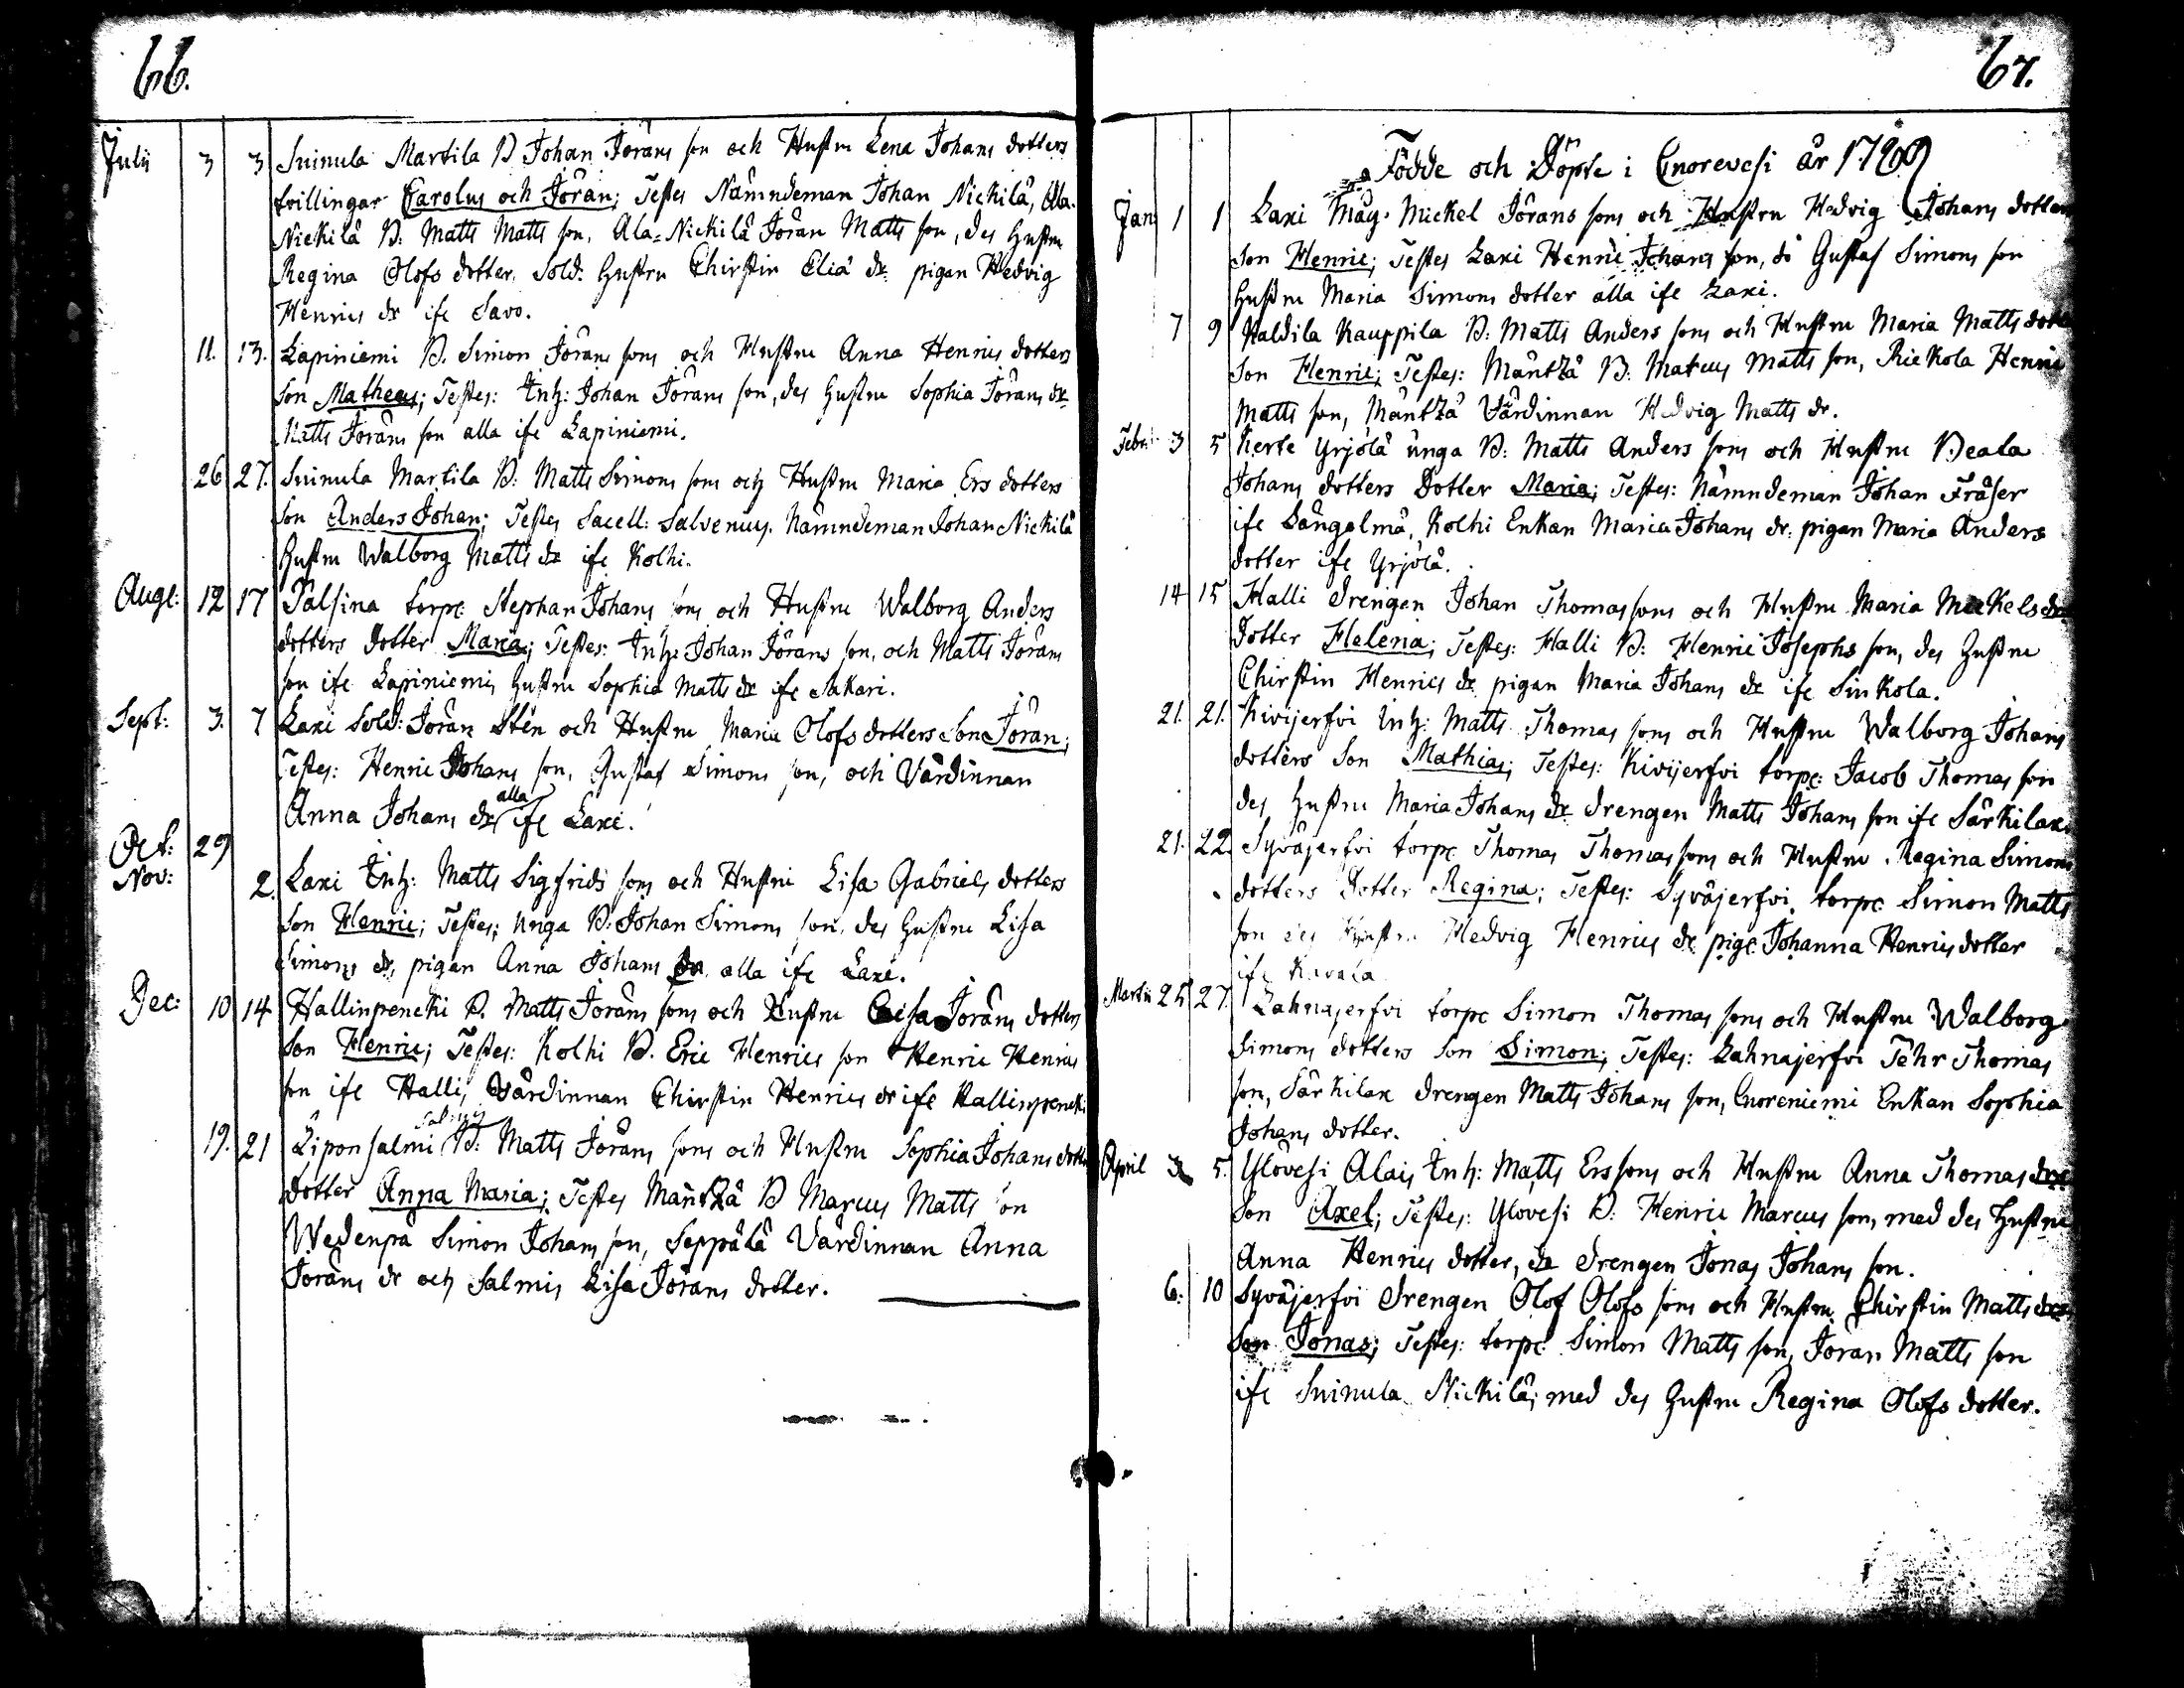 66.
Julii 3 3 Suinula Martila B Johan Jörans son och Hustru Lena Johans dotters
tvillingar Carolus och Jöran; Testes Nämndeman Johan Nickilä, Ala-
Nickilä B: Matts Matts son, Ala=Nickilä Jöran Matts son, des hustru
Regina Olofs dotter, Sold: hustru Chirstin Eliä dr pigan Hedvig
Henrics dr ife Savo.
11. 13. Lapiniemi B. Simon Jörans sons och Hustru Anna Henrics dotters
Son Matheus; Testes: Inh: Johan Jörans son, des hustru Sophia Jörans dr
Matts Jörans son alla ife Lapiniemi.
26 27. Suinula Martila B: Matts Simons sons och Hustru Maria Ers dotters
Son Anders Johan; Testes Sacell: Salvenius. Nämndeman Johan Nickilä
hustru Walborg Matts dr ife Kolhi.
Aug: 12 17 Palsina torp: Stephan Johans sons och Hustru Walborg Anders
dotters dotter Maria; Testes: Inh: Johan Jörans son, och Matts Jörans
son ife Lapiniemi, hustru Sophia Matts dr ife Sakari.
Sept: 3. 7 Laxi Sold: Jöran Stén och Hustru Maria Olofs dotters Son Jöran;
Testes: Henric Johans son, Gustaf Simons son, och Värdinnan
Anna Johans dr alla ife Laxi.
Oct: 29
Nov: 2. Laxi Inh: Matts Sigfrids sons och Hustru Lisa Gabriels dotters
Son Henric; Testes; unga B: Johan Simons son, des hustru Lisa
Simons dr, pigan Anna Johans dr alla ife Laxi.
Dec: 10 14 Hallinpencki B. Matts Jörans sons och Hustru Caisa Jörans dotters
Son Henric; Testes: Kolhi B. Eric Henrics son Henric Henrics
son ife Halli, Värdinnan Chirstin Henrics dr ife Hallinpencki
Salmis
19. 21 Liponsalmi B: Matts Jörans sons och Hustru Sophia Johans dotters
dotter Anna Maria; Testes Mäntzä B Marcus Matts son
Wedenpä Simon Johans son, Seppälä Värdinnan Anna
Jörans dr och Salmis Lisa Jörans dotter.
67.
Födde och Döpte i Enorevesi år 1789
Jan: 1 1 Laxi Måg Mickel Jörans sons och Hustru Hedvig Johans dotters
Son Henric; Testes Laxi Henric Johans son, do Gustaf Simons son
hustru Maria Simons dotter alla ife Laxi.
7 9 Haldila Kauppila B: Matts Anders sons och Hustru Maria Matts dotters
Son Henric; Testes: Mäntzä B: Marcus Matts son, Rickola Henric
Matts son, Mäntzä Värdinnan Hedvig Matts dr.
Febr: 3 5 Kerte Yrjölä unga B: Matts Anders sons och Hustru Beata
Johans dotters Dotter Maria; Testes: Nämndeman Johan Fräser
ife Längalmä, Kolhi Enkan Maria Johans dr: pigan Maria Anders
dotter ife Yrjölä.
14 15 Halli drengen Johan Thomas sons och Hustru Maria Mickels drs
Dotter Helena; Testes: Halli B: Henric Josephs son, des hustru
Chirstin Henrics dr pigan Maria Johans dr ife Sinkola.
21. 21. Kivijerfvi Inh: Matts Thomas sons och Hustru Walborg Johans
dotters Son Mathias; Testes: Kivijerfvi torp: Jacob Thomas son
des hustru Maria Johans dr drengen Matts Johans son ife Särkilax.
21. 22 Syväjerfvi torp: Thomas Thomas sons och Hustru Regina Simons
dotters Dotter Regina; Testes: Syväjerfvi torp: Simon Matts
son des Hustru Hedvig Henrics dr pig: Johanna Henrics dotter
ife
Martii 25 27. Lahnajerfvi torp: Simon Thomas sons och Hustru Walborg
Simons dotters Son Simon; Testes: Lahnajerfvi Pehr Thomas
son, Särkilax drengen Matts Johans son, Enoreniemi Enkan Sophia
Johans dotter.
April 3 5. Ylövesi Alais Inh: Matts Ers sons och Hustru Anna Thomas drs
Son Axel; Testes: Ylövesi B: Henric Marcus son, med des hustru
Anna Henrics dotter, drengen Jonas Johans son.
6: 10 Syväjerfvi drengen Olof Olofs sons och Hustru Chirstin Matts drs
Son Jonas; Testes: torp: Simon Matts son, Jöran Matts son
ife Suinula Nickilä; med des hustru Regina Olofs dotter.